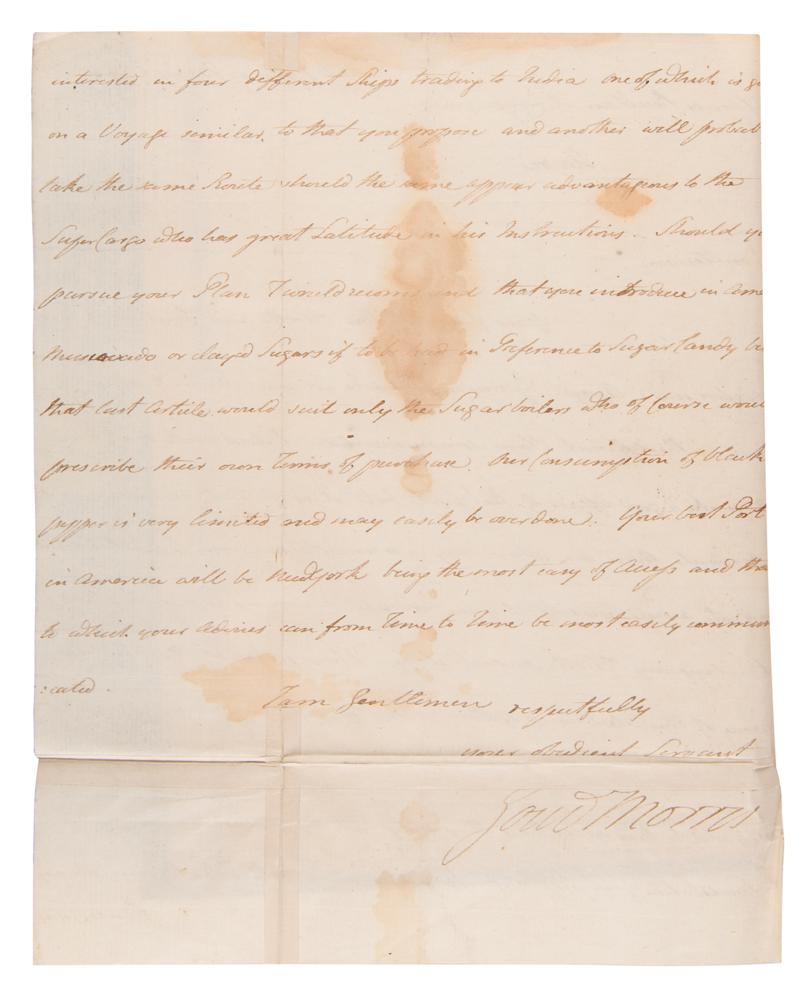 interested in four different Ships trading to India one of which is g
on a Voyage similar to that you propose and another will probab
take the same Route should the same appear advantageous to the
SuperCargo who has great Latitude in his Instructions. Should y
pursue your Plan I would recommend that you introduce in Ame
Muscovado or clayed Sugars if to be had in Preference to Sugar Candy
that last Article would suit only the Sugar boilers who of Course woul
prescribe their own Terms of purchase. Our Consumption of black
pepper is very limited and may easily be overdone. Your best Port
in America will be NewYork being the most easy of Access and tha
to which your Advices can from Time to Time be most easily commun
:cated.
I am Gentlemen respectfully
your obedient Servant
Gouv Morris